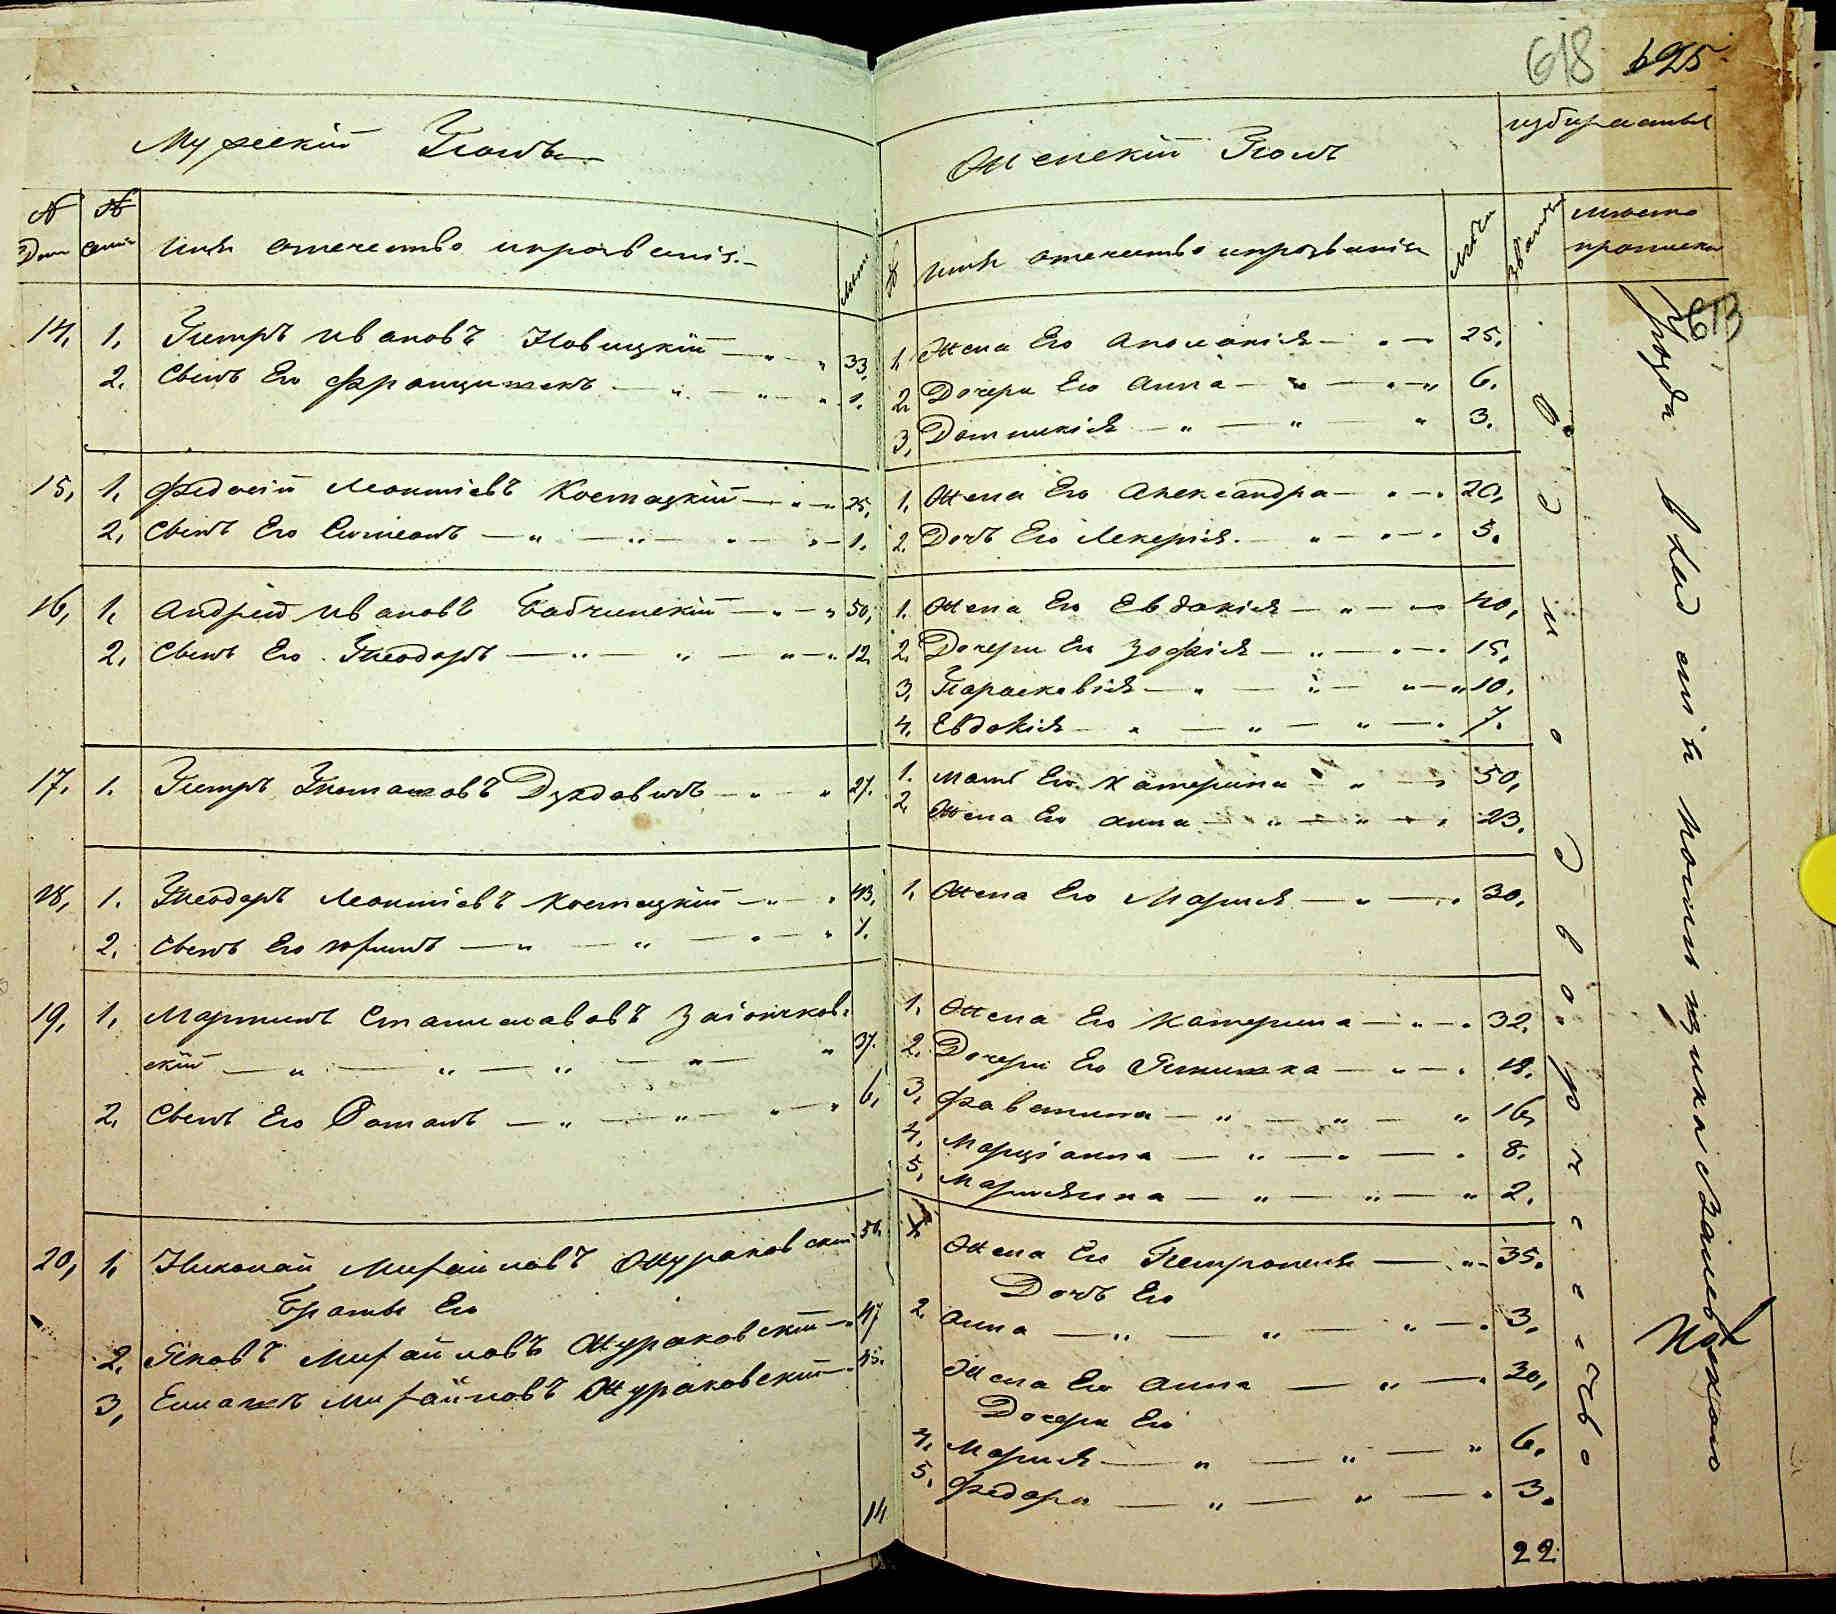 618 625
Мужескій Полъ
№ Дом № Семи Имя отечество и прозваніе Лѣта
14. 1. Петръ Ивановъ Новицкій — 33.
2. Сынъ Его Францишекъ — 1.
15. 1. Федосій Леонтіевъ Костецкій — 25.
2. Сынъ Его Симеонъ — 1.
16. 1. Андрей Ивановъ Бабчинскій — 50.
2. Сынъ Его Теодоръ — 12.
17. 1. Петръ Томашовъ — 27.
18. 1. Теодоръ Леонтіевъ Костецкій — 43.
2. Сынъ Его — 1.
19. 1. Мартинъ Станиславовъ Заіончков-
скій — 37.
2. Сынъ Его Романъ — 6.
20. 1. Николай Михайловъ Жураковскій 50.
Братья Его
2. Яковъ Михайловъ Жураковскій — 47
3. Михайловъ Жураковскій — 45.
14
Женскій Полъ
№ Имя отечество и прозваніе Лѣта
1. Жена Его Аполонія — 25.
2. Дочери Его Анна — 6.
3. Доминикія — 3.
1. Жена Его Александра — 20.
2. Дочь Его Лекерія — 5.
1. Жена Его Евдокія — 40.
2. Дочери Его Зофія — 15.
3. Параскевія — 10.
4. Евдокія — 7.
1. Мать Его Катерина — 50.
2. Жена Его Анна — 23.
1. Жена Его Марія — 30.
1. Жена Его Катерина — 32.
2. Дочери Его — 18.
3. Фавстина — 16.
4. Марціанна — 8.
5. Маріянна — 2.
1. Жена Его Петронеля — 35.
Дочь Его
2. Анна — 3.
Жена Его Анна — 30.
Дочери Его
4. Марія — 6.
5. Федора — 3.
22
Званіе
мѣсто
прописки
613
Уѣзда